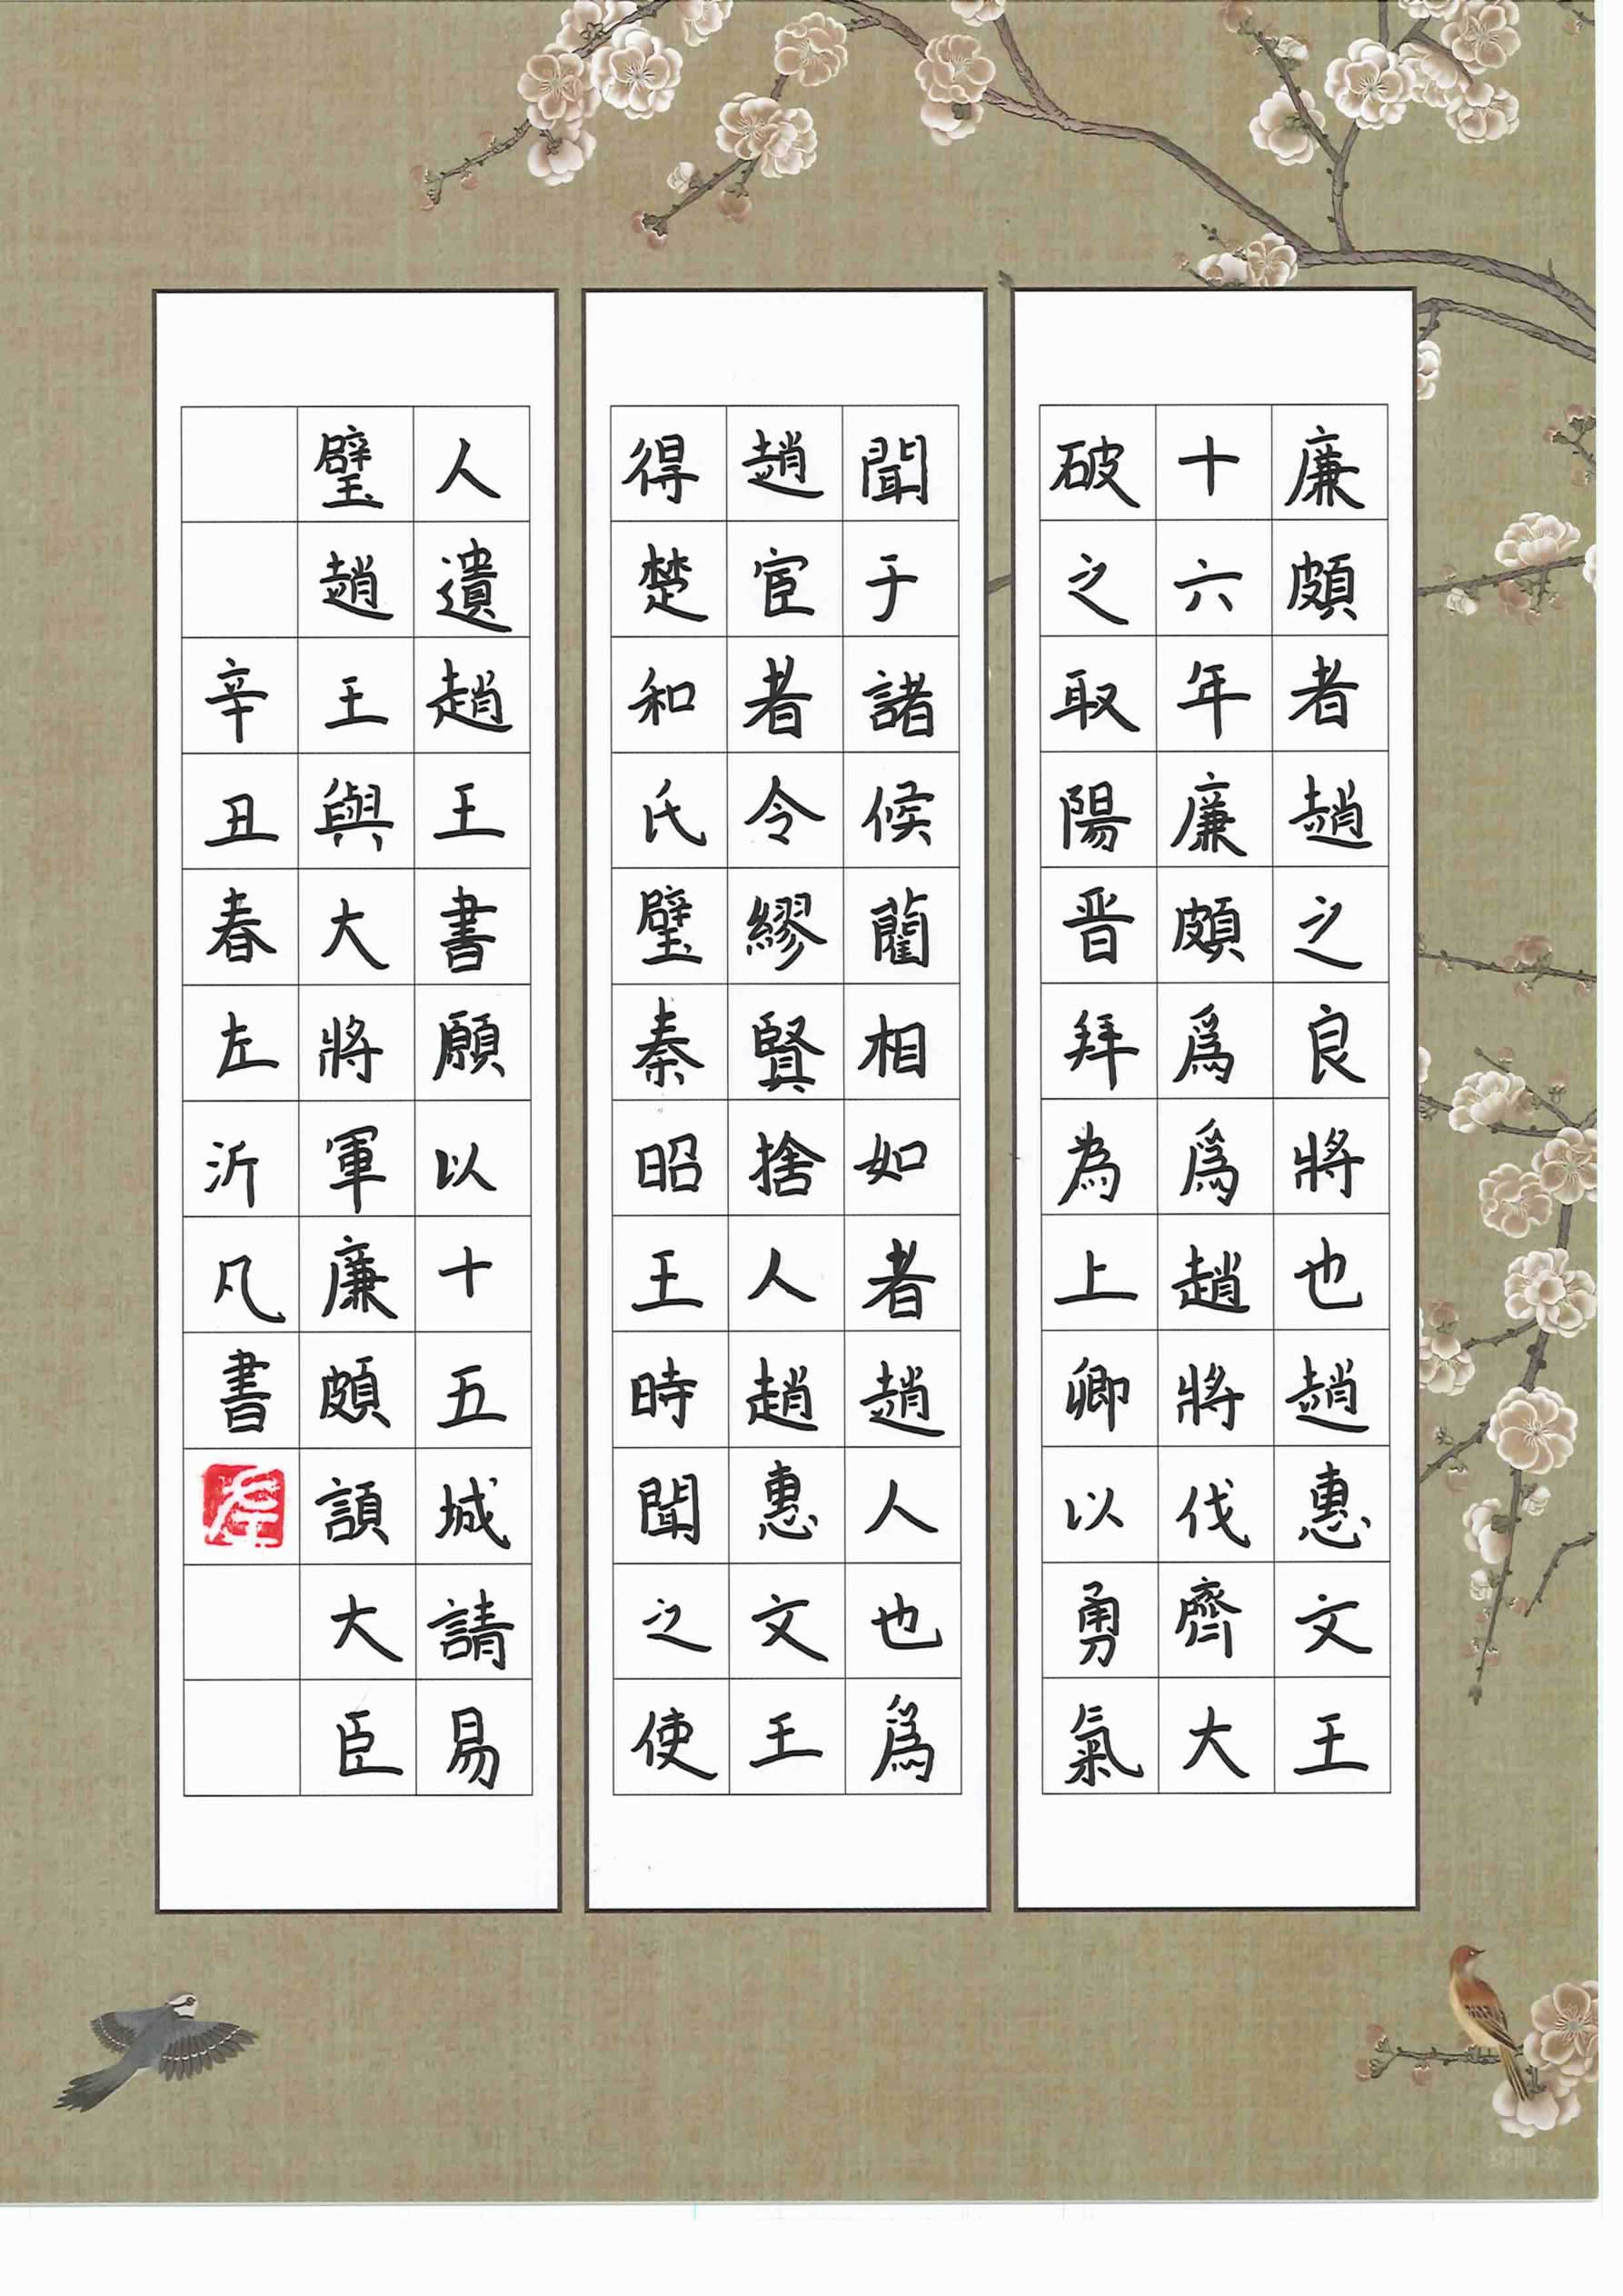 廉頗者趙之良將也趙惠文王
十六年廉頗爲爲趙將伐齊大
破之取陽晋拜為上卿以勇氣
聞于諸候藺相如者趙人也爲
趙宦者令繆賢捨人趙惠文王
得楚和氏璧秦昭王時聞之使
人遺趙王書願以十五城請易
璧趙王與大將軍廉頗大臣
辛丑春左沂凡書
左